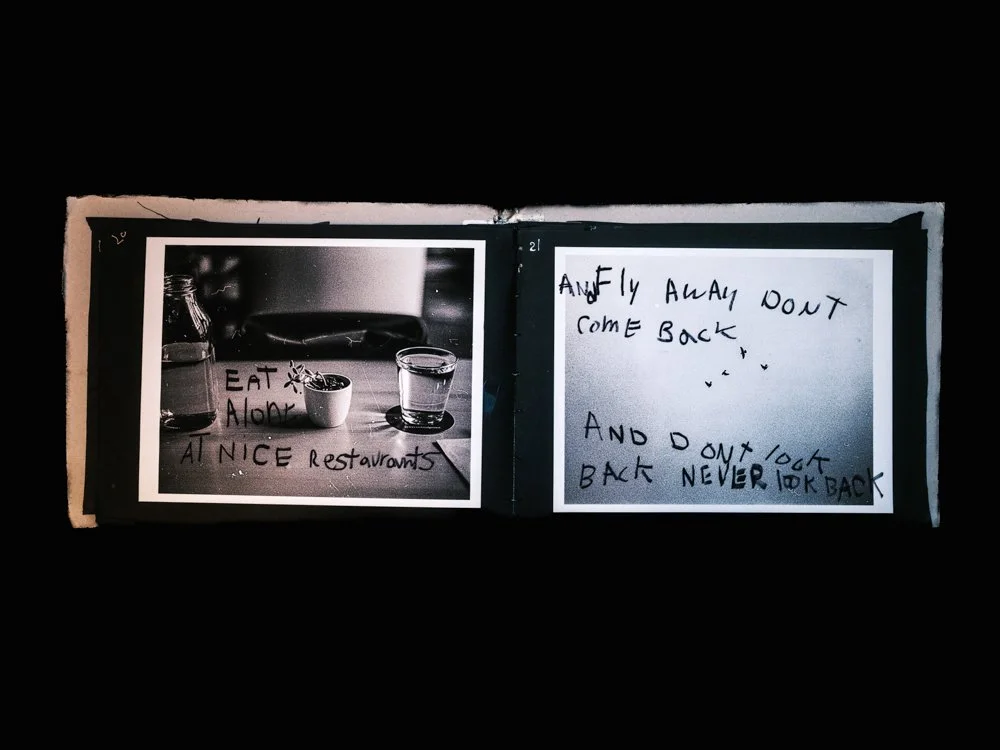 20
EAT
Alone
AT NICE Restaurants
21
AND Fly AWAy DONT
ComE BacK
AND DONT look
BACK NEVER lOOK BACK